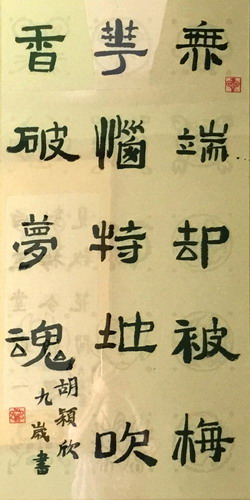 無端却被梅
華惱特地吹
香破夢魂
胡穎欣
九歲書